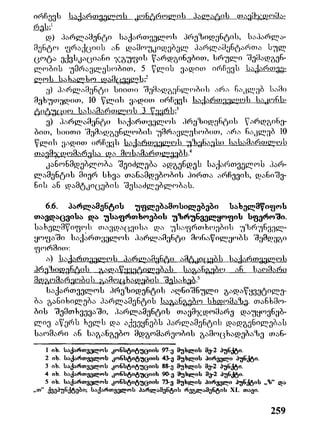 ირჩევს საქართველოს კონტროლის პალატის თავმჯდომა-
რეს;¹
დ) პარლამენტი საქართველოს პრეზიდენტის, საპარლა-
მენტო ფრაქციის ან დამოუკიდებელ პარლამენტართა სულ
ცოტა ექვსკაციანი ჯგუფის წარდგინებით, სრული შემადგენ-
ლობის უმრავლესობით, 5 წლის ვადით ირჩევს საქართვე-
ლოს სახალხო დამცველს;²
ე) პარლამენტი სიითი შემადგენლობის არა ნაკლებ სამი
მეხუთედით, 10 წლის ვადით ირჩევს საქართველოს საკონს-
ტიტუციო სასამართლოს 3 წევრს;³
ვ) პარლამენტი საქართველოს პრეზიდენტის წარდგინე-
ბით, სიითი შემადგენლობის უმრავლესობით, არა ნაკლებ 10
წლის ვადით ირჩევს საქართველოს უზენაესი სასამართლოს
თავმჯდომარესა და მოსამართლეებს.⁴
კანონმდებლობა შეიძლება ადგენდეს საქართველოს პარ-
ლამენტის მიერ სხვა თანამდებობის პირთა არჩევის, დანიშვ-
ნის ან დამტკიცების შესაძლებლობას.
6.6. პარლამენტის უფლებამოსილებები სახელმწიფოს
თავდაცვისა და უსაფრთხოების უზრუნველყოფის სფეროში.
სახელმწიფოს თავდაცვისა და უსაფრთხოების უზრუნველ-
ყოფაში საქართველოს პარლამენტი მონაწილეობს შემდეგი
ფორმით:
ა) საქართველოს პარლამენტი ამტკიცებს საქართველოს
პრეზიდენტის გადაწყვეტილებას საგანგებო ან საომარი
მდგომარეობის გამოცხადების შესახებ.⁵
საქართველოს პრეზიდენტის აღნიშნული გადაწყვეტილე-
ბა განიხილება პარლამენტის საგანგებო სხდომაზე. თანხმო-
ბის შემთხვევაში, პარლამენტის თავმჯდომარე დაუყოვნებ-
ლივ აწერს ხელს და აქვეყნებს პარლამენტის დადგენილებას
საომარი ან საგანგებო მდგომარეობის გამოცხადებაზე თან-
1 იხ. საქართველოს კონსტიტუციის 97-ე მუხლის მე-2 პუნქტი.
2 იხ. საქართველოს კონსტიტუციის 43-ე მუხლის პირველი პუნქტი.
3 იხ. საქართველოს კონსტიტუციის 88-ე მუხლის მე-2 პუნქტი.
4 იხ. საქართველოს კონსტიტუციის 90-ე მუხლის მე-2 პუნქტი.
5 იხ. საქართველოს კონსტიტუციის 73-ე მუხლის პირველი პუნქტის „ზ“ და
„თ“ ქვეპუნქტები; საქართველოს პარლამენტის რეგლამენტის XL თავი.
259